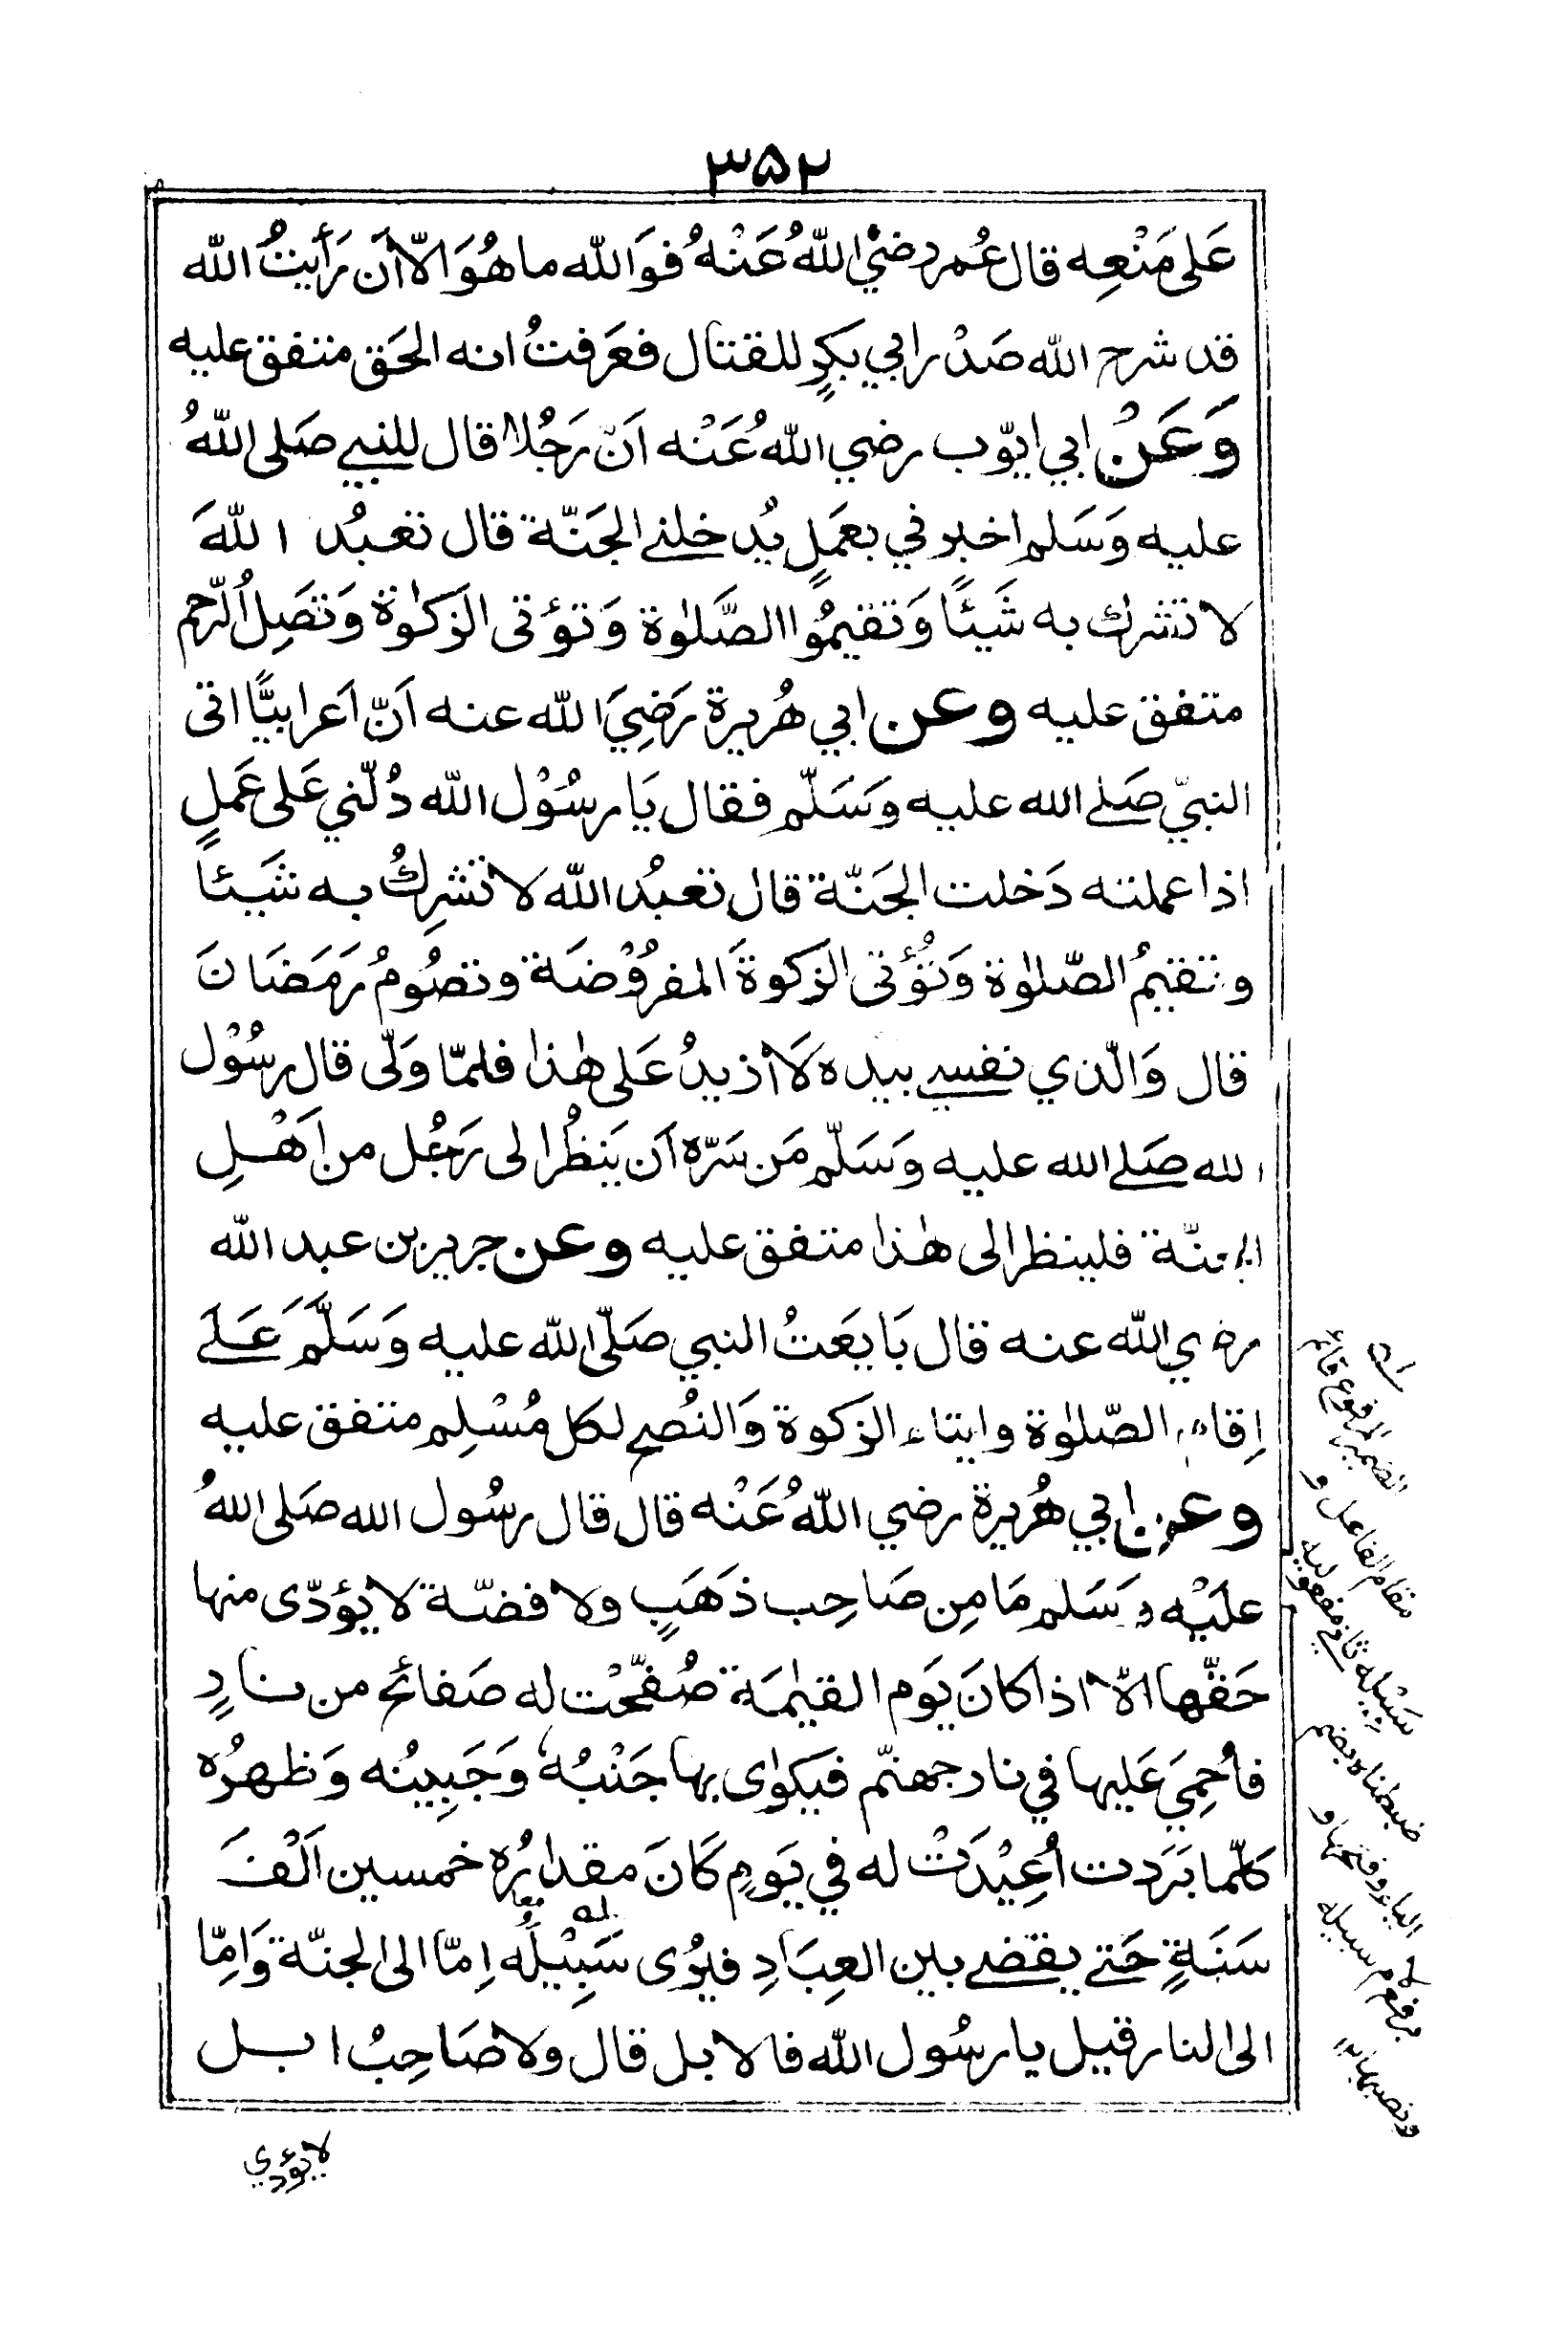 ۳۵۲
عَلى مَنْعِه قال عُمر رضيْ اللّٰهُ عَنْهُ فوَاللّٰه ما هُوَ الّا أن رَأيتُ اللّٰه
قد شرح اللّٰه صَدْر ابي بكرٍ للقتال فعَرَفتُ انه الحَق متفق عليه
وَعَنْ ابي ايّوب رضي اللّٰهُ عَنْه اَنّ رَجُلا قال للنبي صَلى اللّٰهُ
عليه وَسَلم اخبرني بعَمَلٍ يُدخلني الجَنّة قال تعبُد اللّٰهَ
لا تشرك به شَيئًا وَتقيمُوا الصَّلوٰة وَتؤتى الزكوٰة وَتصَِلُ الرّحم
متفق عليه وعن ابي هُريرة رَضِيَ اللّٰه عنه اَنّ اَعرابيًّا اتى
النبيّ صَلے اللّٰه عليه وَسَلّم فقال يَا رسُوْل اللّٰه دُلّني عَلى عَمَلٍ
اذا عملته دَخلت الجَنّة قال تعبُد اللّٰه لا تشرِكُ به شَيئا
وتقيمُ الصّلوٰة وَتُؤتى الزكوةَ المفرُوْضَة وتصُومُ رَمَضَانَ
قال وَالّذي نفسي بيده لَا أزيدُ عَلى هٰذا فلمّا وَلّى قال رسُوْل
الله صَلے الله عليه وَسَلّم مَن سَرّه اَن يَنظُر الى رَجُل من اَهْلِ
الجنّة فلينظر الى هٰذا متفق عليه وعن جرير بن عبد اللّٰه
رضي اللّٰه عنه قال بَايَعَتُ النبي صَلّى اللّٰه عليه وَسَلَّمَ عَلَے
اِقام الصّلوٰة وايتاء الزكوة وَالنُصح لكل مُسْلِم متفق عليه
وعن ابي هُريرة رضي اللّٰهُ عَنْه قال قال رسُول الله صَلى اللّٰهُ
عَليْه وَسَلم مَا مِن صَاحِب ذهَبٍ ولا فضّة لا يؤدّى منها
حَقّها الّا اذا كانَ يَوم القيٰمَة صُفّحْت له صَفائح من نارٍ
فاُحمِيَ عَليها في نار جهنّم فيكوٰى بها جَنْبُهُ وَجَبِينُه وَظهرُه
كلّما بَرَدت اُعِيْدَتْ له في يَومٍ كَانَ مقدارُه خمسين اَلْفَ
سَنَةٍ حَتے يقضے بين العِبَادِ فيرُى سَبِيْلُه اِمّا الى الجنّة وَامِّا
الى النار قيل يا رسُول اللّٰه فالابل قال ولا صَاحِبُ ابل
لا يؤدي
الضمير المرفوع قائم
مقام الفاعل و
سَبِيْله ثاني مفعوليه
ضبطناه بضم
الياء وفتحها و
برفع لام سبيله
ونصبها